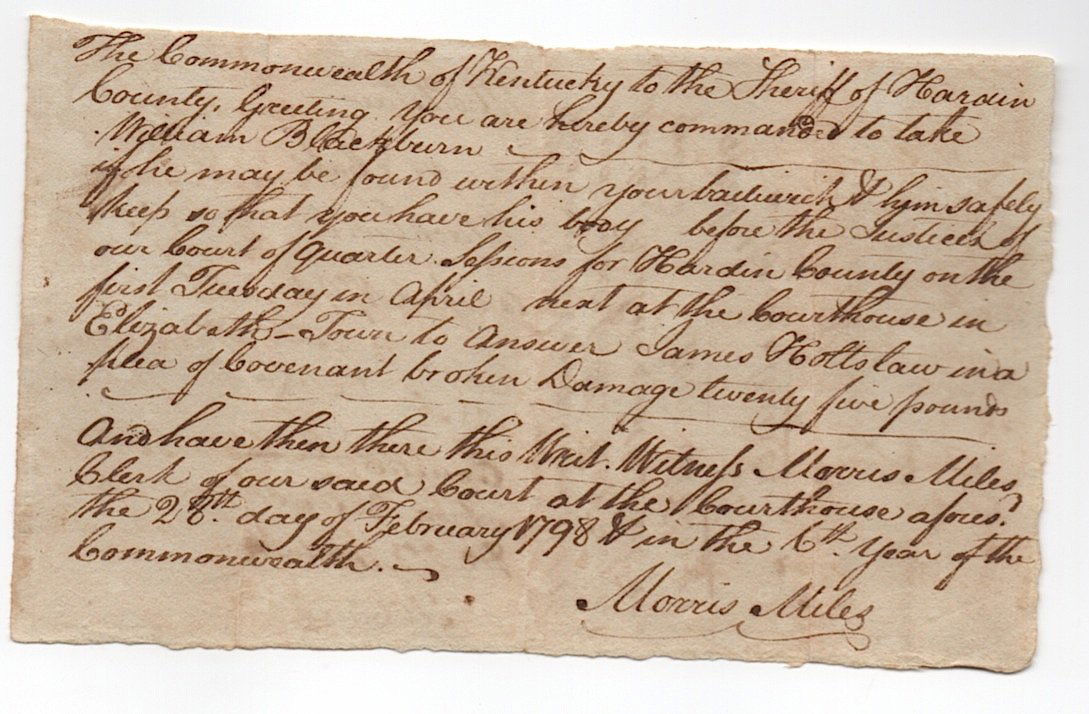 The Commonwealth of Kentucky to the Sheriff of Hardin
County, Greeting. You are hereby commanded to take
William Blackburn
if he may be found within your bailiwick & him safely
keep so that you have his body before the Justices of
our Court of Quarter Sessions for Hardin County on the
first Tuesday in April next at the Courthouse in
Elizabeth-Town to answer James Holtslaw in a
plea of Covenant broken Damage twenty five pounds
And have then there this Writ. Witness Morris Miles
Clerk of our said Court at the Courthouse afores.d
the 28th. day of February 1798 & in the 6th. Year of the
Commonwealth.
Morris Miles